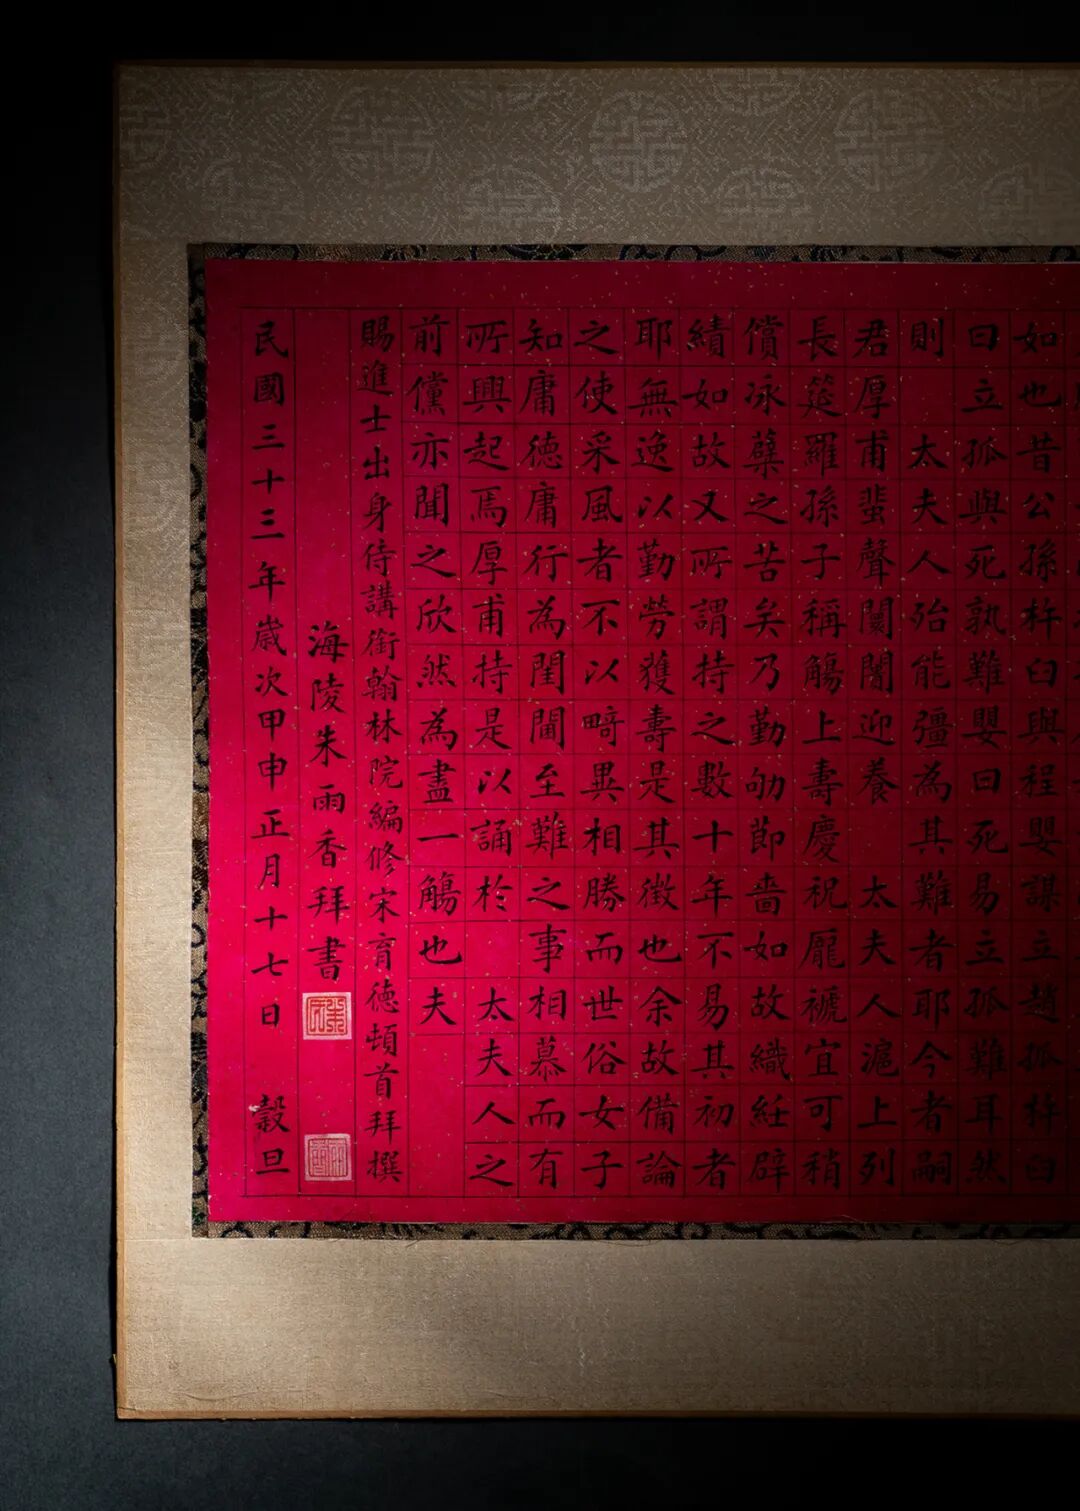 如也昔公孫杵臼與程嬰謀立趙孤杵臼
曰立孤與死孰難嬰曰死易立孤難耳然
則 太夫人殆能彊為其難者耶今者嗣
君厚甫蜚聲闤闠迎養 太夫人滬上列
長筵羅孫子稱觴上壽慶祝龐禠宜可稍
償冰蘖之苦矣乃勤劬節嗇如故織紝辟
績如故又所謂持之數十年不易其初者
耶無逸以勤勞獲壽是其徵也余故備論
之使采風者不以畸異相勝而世俗女子
知庸德庸行為閨閫至難之事相慕而有
所興起焉厚甫持是以誦於 太夫人之
前儻亦聞之欣然為盡一觴也夫
賜進士出身侍講銜翰林院編修宋育德頓首拜撰
海陵朱雨香拜書
民國三十三年歲次甲申正月十七日 穀旦